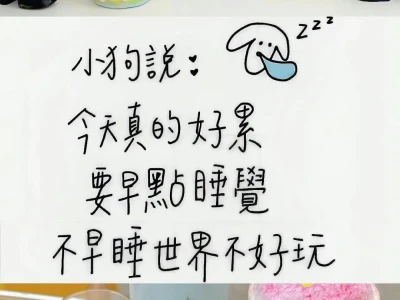 小狗說:
zzz
今天真的好累
要早點睡覺
不早睡世界不好玩